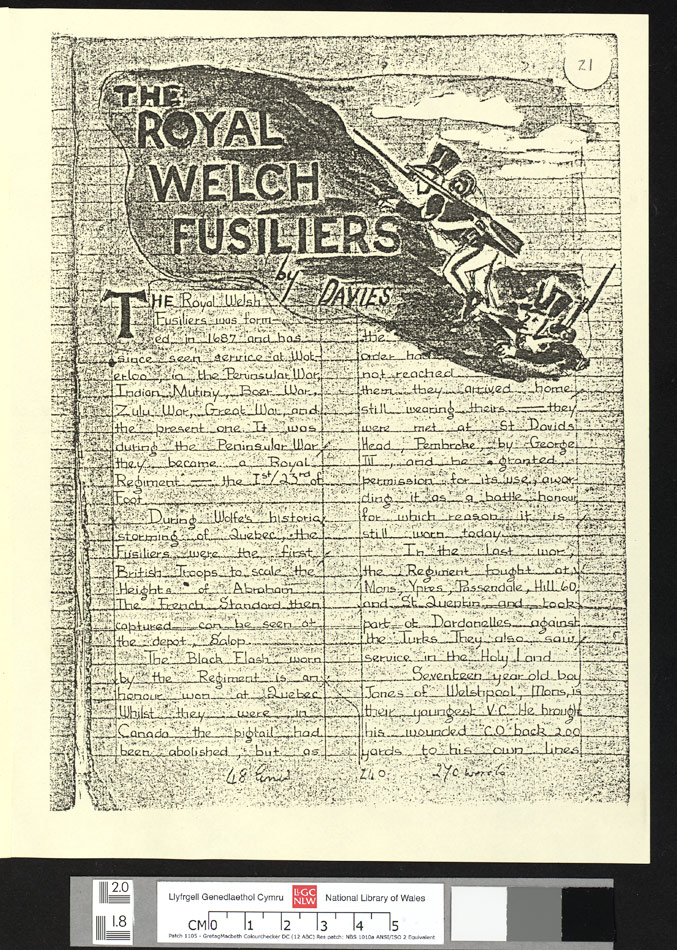 21
THE
ROYAL
WELCH
FUSILIERS
by DAVIES
THE Royal Welsh
Fusiliers was form-
ed in 1687 and has
since seen service at Wat-
erloo, in the Peninsular War,
Indian Mutiny, Boer War,
Zulu War, Great War, and
the present one. It was
during the Peninsular War
they became a Royal
Regiment — the 1st/23rd of
Foot.
During Wolfe's historic
storming of Quebec, the
Fusiliers were the first
British Troops to scale the
Heights of Abraham.
The French Standard then
captured can be seen at
the depot, Salop.
The Black Flash worn
by the Regiment is an
honour won at Quebec
Whilst they were in
Canada the pigtail had
been abolished but as
the
order had
not reached
them they arrived home
still wearing theirs — they
were met at St Davids
Head, Pembroke by George
III, and he granted
permission for its use, awar
ding it as a battle honour
for which reason it is
still worn today.
In the last war,
the Regiment fought at
Mons, Ypres, Passendale, Hill 60,
and St. Quentin and took
part at Dardanelles against
the Turks They also saw
service in the Holy Land
Seventeen year old boy
Jones of Welshpool, Mons, is
their youngest V.C. He brought
his wounded C.O back 200
yards to his own lines
48 lines 240 270 words
2.0
1.8
Llyfrgell Genedlaethol Cymru LlGC NLW National Library of Wales
CM 0 1 2 3 4 5
Patch 1105 - GretagMacbeth Colourchecker DC (12 ABC) Res patch: NBS 1010a ANSI/ISO 2 Equivalent